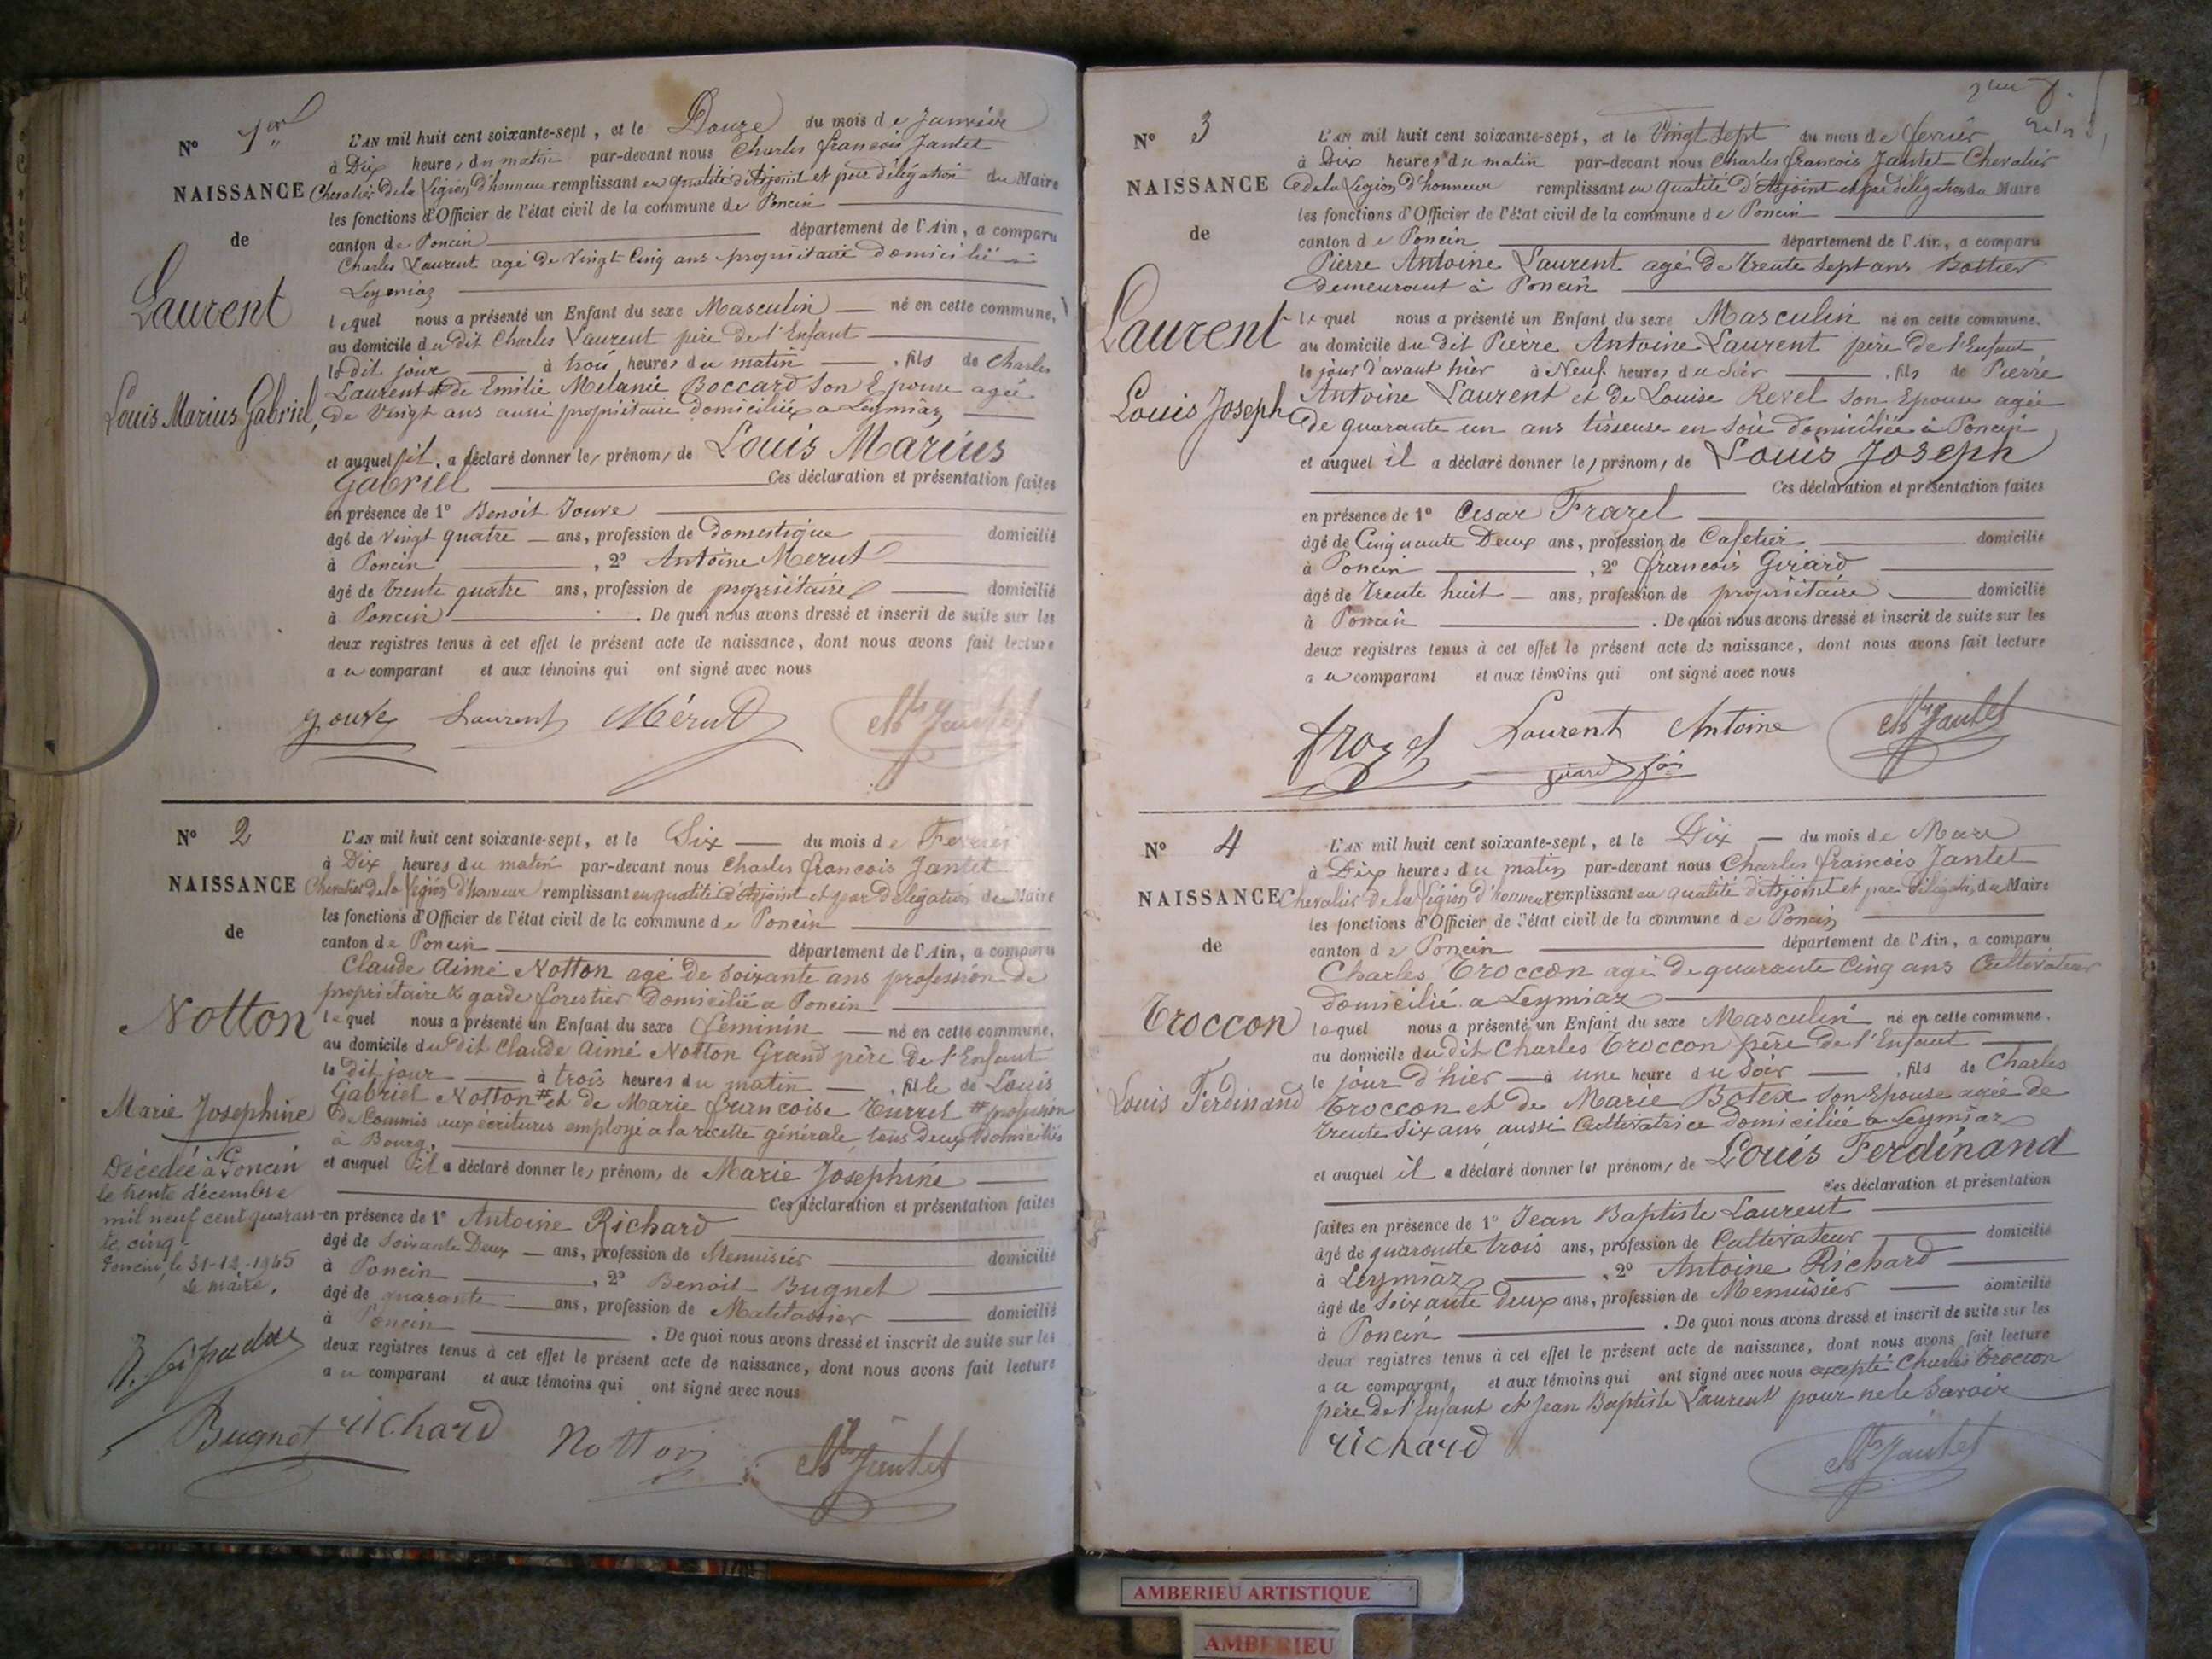 N° 1er
NAISSANCE
de
Laurent
Louis Marius Gabriel,
L'AN mil huit cent soixante-sept, et le Douze du mois de Janvier
à Dix heures du matin par-devant nous Charles françois Jantet
Chevalier de la Légion d'honneur remplissant en qualité d'Adjoint et par délégation du Maire
les fonctions d'Officier de l'état civil de la commune de Poncin
canton de Poncin département de l'Ain, a comparu
Charles Laurent agé de Vingt Cinq ans propriétaire domicilié a
Leymiaz
lequel nous a présenté un Enfant du sexe Masculin né en cette commune,
au domicile du dit Charles Laurent père de l'Enfant
le dit jour à trois heures du matin , fils de Charles
Laurent & de Emilie Mélanie Boccard son Epouse agée
de Vingt ans aussi propriétaire domiciliée a Leymiaz
et auquel il a déclaré donner les prénoms de Louis Marius
Gabriel Ces déclaration et présentation faites
en présence de 1° Benoit Jouve
âgé de vingt quatre ans, profession de domestique domicilié
à Poncin , 2° Antoine Merut
âgé de trente quatre ans, profession de propriétaire domicilié
à Poncin . De quoi nous avons dressé et inscrit de suite sur les
deux registres tenus à cet effet le présent acte de naissance, dont nous avons fait lecture
au comparant et aux témoins qui ont signé avec nous
Jouve Laurent Mérut Ch Jantet
N° 2
NAISSANCE
de
Notton
Marie Josephine
Décédée à Poncin
le trente décembre
mil neuf cent quaran-
te cinq
Poncin, le 31-12-1945
Le maire,
L'AN mil huit cent soixante-sept, et le Six du mois de Fevrier
à Dix heures du matin par-devant nous Charles françois Jantet
Chevalier de la Légion d'honneur remplissant en qualité d'Adjoint et par Délégation du Maire
les fonctions d'Officier de l'état civil de la commune de Poncin
canton de Poncin département de l'Ain, a comparu
Claude Aimé Notton agé de soixante ans profession de
propriétaire & garde forestier domicilié a Poncin
lequel nous a présenté un Enfant du sexe Feminin né en cette commune,
au domicile du dit Claude Aimé Notton Grand père de l'Enfant
le dit jour à trois heures du matin , fille de Louis
Gabriel Notton # et de Marie françoise Turrel # profession
de Commis aux écritures employé a la recette générale tous deux domiciliés
à Bourg.
et auquel il a déclaré donner les prénoms de Marie Josephine
Ces déclaration et présentation faites
en présence de 1° Antoine Richard
âgé de soixante Deux ans, profession de Menuisier domicilié
à Poncin , 2° Benoit Bugnet
âgé de quarante ans, profession de Matelassier domicilié
à Poncin . De quoi nous avons dressé et inscrit de suite sur les
deux registres tenus à cet effet le présent acte de naissance, dont nous avons fait lecture
au comparant et aux témoins qui ont signé avec nous
Bugnet richard Notton Ch Jantet
N° 3
NAISSANCE
de
Laurent
Louis Joseph
L'AN mil huit cent soixante-sept, et le Vingt sept du mois de fevrier
à Dix heures du matin par-devant nous Charles françois Jantet Chevalier
de la Légion d'honneur remplissant en qualité d'Adjoint et par délégation du Maire
les fonctions d'Officier de l'état civil de la commune de Poncin
canton de Poncin département de l'Ain, a comparu
Pierre Antoine Laurent agé de trente sept ans Bottier
demeurant à Poncin
lequel nous a présenté un Enfant du sexe Masculin né en cette commune,
au domicile du dit Pierre Antoine Laurent père de l'Enfant
le jour d'avant hier à Neuf heures du soir , fils de Pierre
Antoine Laurent et de Louise Revel son Epouse agée
de quarante un ans tisseuse en soie domiciliée à Poncin
et auquel il a déclaré donner les prénoms de Louis Joseph
Ces déclaration et présentation faites
en présence de 1° Cesar Frazel
âgé de Cinquante Deux ans, profession de Cafetier domicilié
à Poncin , 2° françois Girard
âgé de trente huit ans, profession de propriétaire domicilié
à Poncin . De quoi nous avons dressé et inscrit de suite sur les
deux registres tenus à cet effet le présent acte de naissance, dont nous avons fait lecture
au comparant et aux témoins qui ont signé avec nous
Laurent Antoine Ch Jantet
N° 4
NAISSANCE
de
Troccon
Louis Ferdinand
L'AN mil huit cent soixante-sept, et le Dix du mois de Mars
à Dix heures du matin par-devant nous Charles françois Jantet
Chevalier de la Légion d'honneur remplissant en qualité d'Adjoint et par délégation du Maire
les fonctions d'Officier de l'état civil de la commune de Poncin
canton de Poncin département de l'Ain, a comparu
Charles Troccon agé de quarante Cinq ans Cultivateur
domicilié a Leymiaz
lequel nous a présenté un Enfant du sexe Masculin né en cette commune.
au domicile du dit Charles Troccon père de l'Enfant
le jour d'hier à une heure du soir , fils de Charles
Troccon et de Marie Botex son Epouse agée de
trente six ans aussi Cultivatrice domiciliée a Leymiaz
et auquel il a déclaré donner les prénoms de Louis Ferdinand
Ces déclaration et présentation
faites en présence de 1° Jean Baptiste Laurent
âgé de quarante trois ans, profession de Cultivateur domicilié
à Leymiaz , 2° Antoine Richard
âgé de soixante deux ans, profession de Menuisier domicilié
à Poncin . De quoi nous avons dressé et inscrit de suite sur les
deux registres tenus à cet effet le présent acte de naissance, dont nous avons fait lecture
au comparant, et aux témoins qui ont signé avec nous excepté Charles Troccon
père de l'Enfant et Jean Baptiste Laurent pour ne le savoir
richard Ch Jantet
AMBERIEU ARTISTIQUE
AMBERIEU